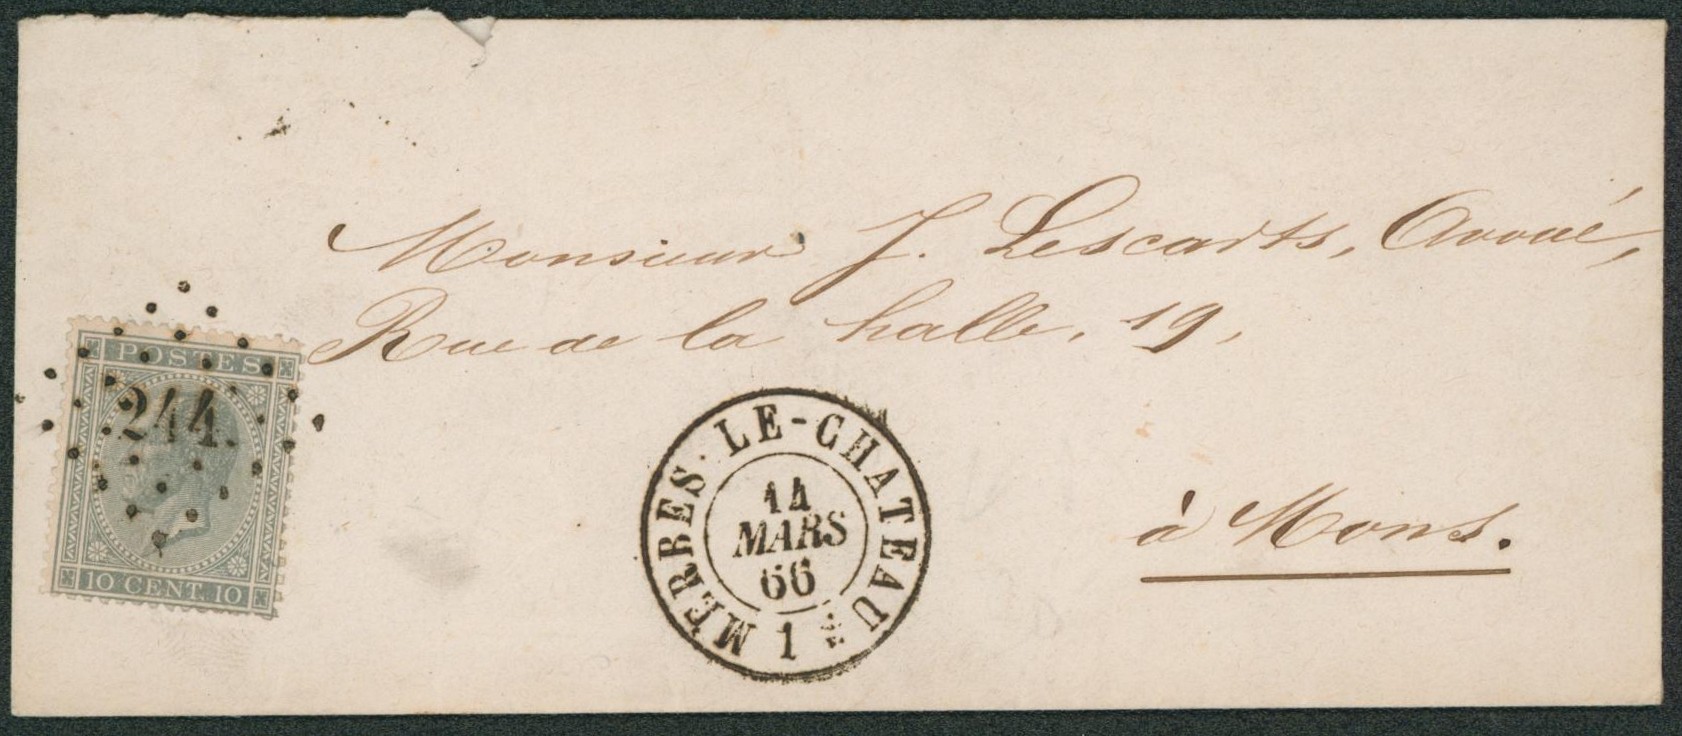 Monsieur J. Lescarts, Avoué,
Rue de la halle, 19,
à Mons.
POSTES
244.
10 CENT. 10
MERBES-LE-CHATEAU
14
MARS
66
1